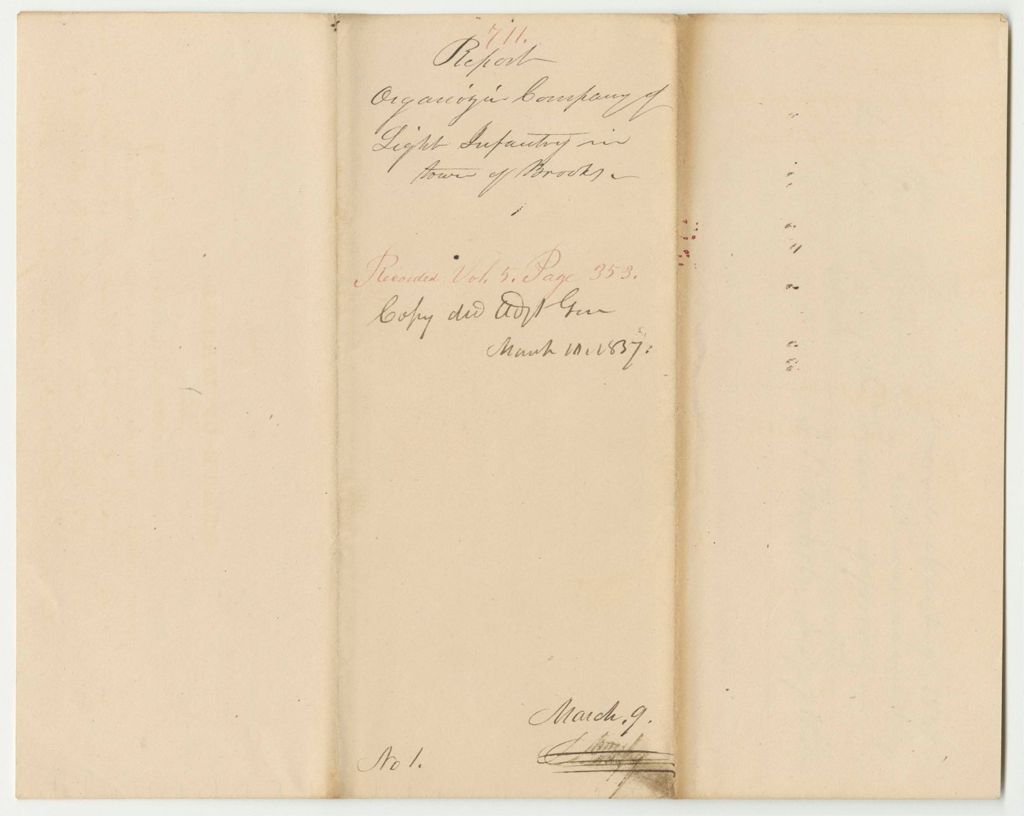 711.
Report
Organizing Company of
Light Infantry in
town of Brooks.
Recorded Vol. 5. Page 353.
Copy did Adjt Gen
March 10. 1837.
March. 9.
No 1.